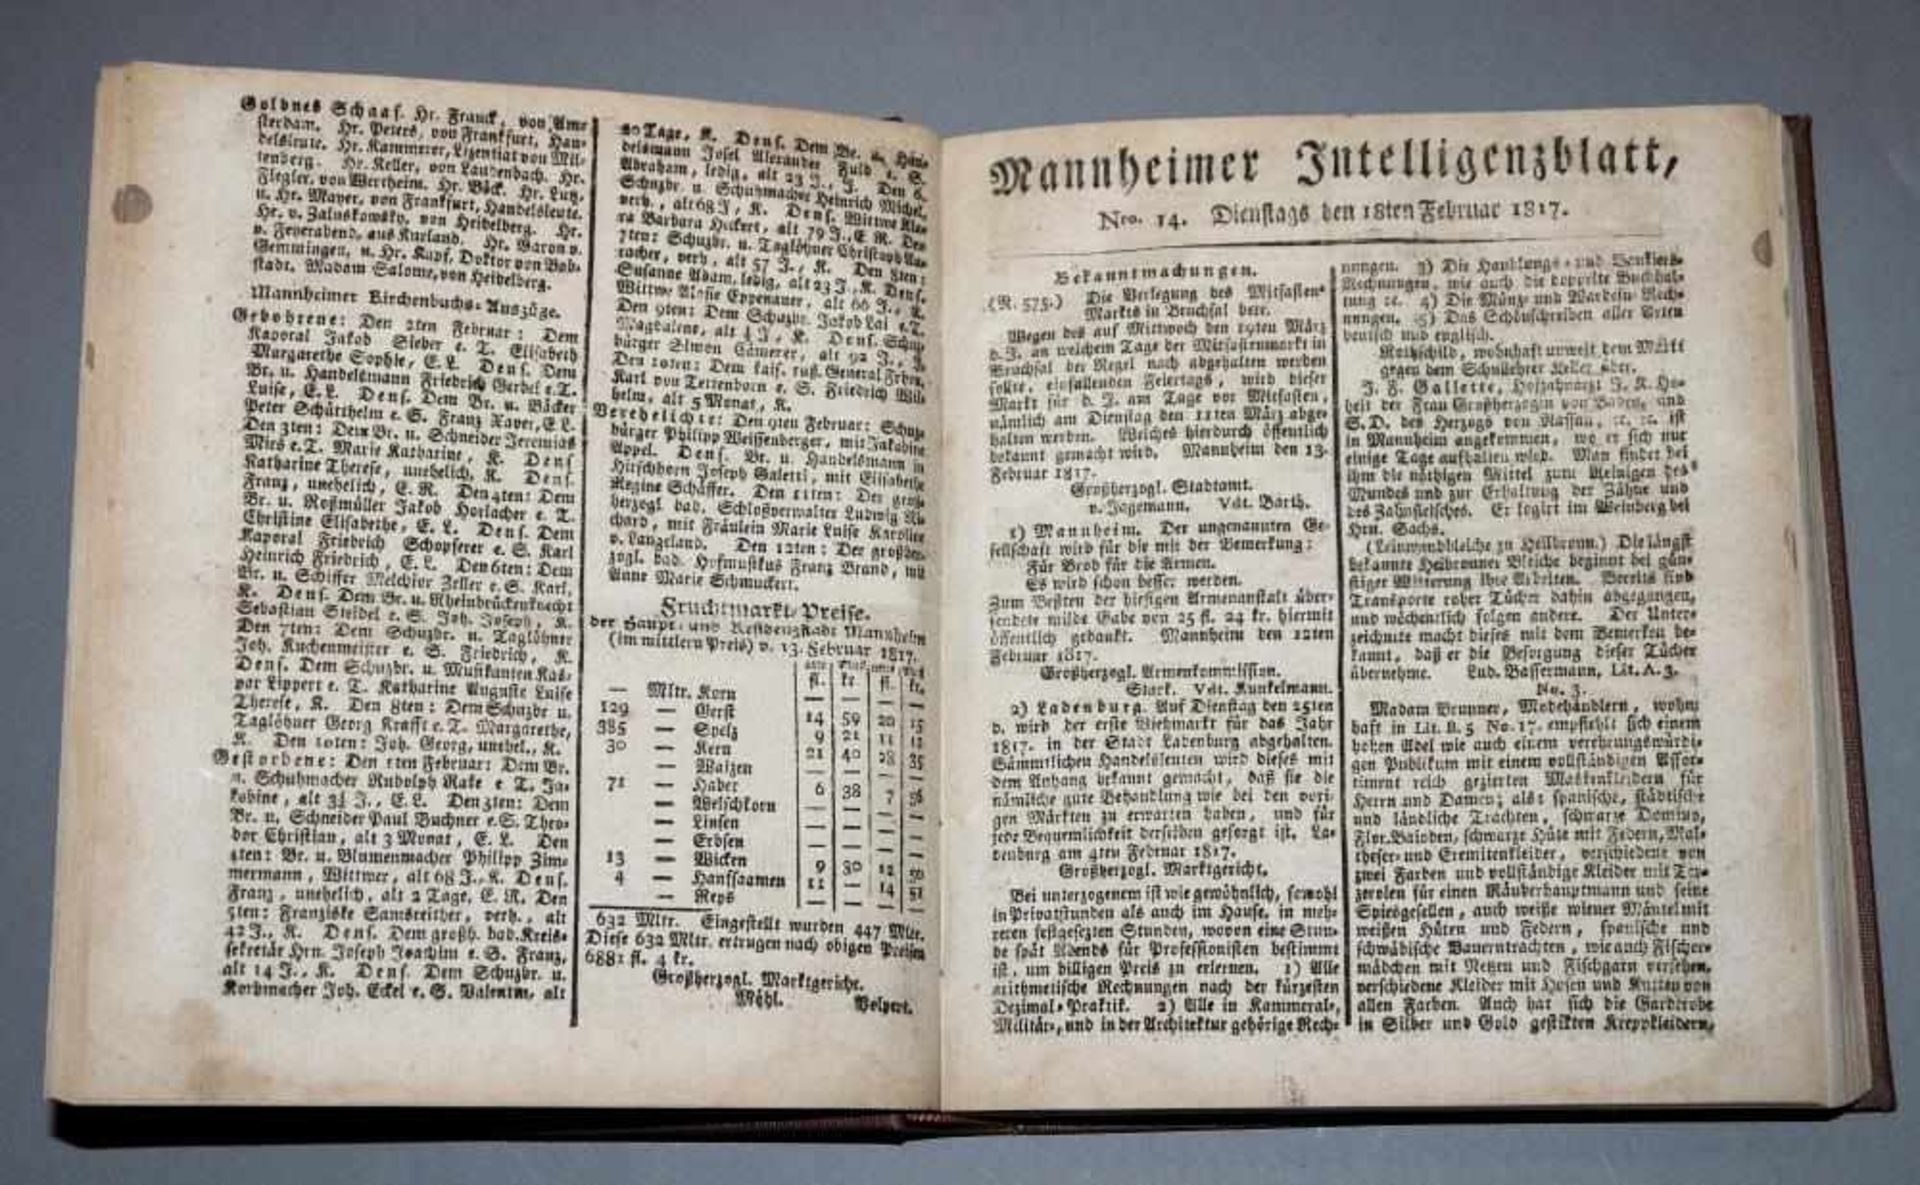 Goldnes Schaaf. Hr. Franck, von Am-
sterdam. Hr. Peters, von Frankfurt, Han-
delsleute. Hr. Kammerer, Lizentiat von Mil-
tenberg. Hr. Keller, von Laudenbach. Hr.
Flegler, von Wertheim. Hr. Böck. Hr. Lutz,
u. Hr. Mayer, von Frankfurt, Handelsleute.
Hr. v. Zaluskowsky, von Heidelberg. Hr.
v. Feyerabend, aus Kurland. Hr. Baron v.
Gemmingen, u. Hr. Kapf, Doktor von Bob-
stadt. Madam Salome, von Heidelberg.
Mannheimer Kirchenbuchs-Auszüge.
Gebohrene: Den 2ten Februar: Dem
Kaporal Jakob Sieber e. T. Elisabeth
Margarethe Sophie, E. L. Dens. Dem
Br. u. Handelsmann Friedrich Gerbel e. T.
Luise, E. L. Dens. Dem Br. u. Bäcker
Peter Schüttheim e. S. Franz Xaver, E. L.
Den 3ten: Dem Br. u. Schneider Jeremias
Mies e. T. Marie Katharine, K. Dens
Katharine Therese, unehelich, K. Dens.
Franz, unehelich, E. R. Den 4ten: Dem
Br. u. Roßmüller Jakob Horlacher e. T.
Christine Elisabethe, E. L. Dens. Dem
Kaporal Friedrich Schopferer e. S. Karl
Heinrich Friedrich, E. L. Den 6ten: Dem
Br. u. Schiffer Melchior Zeller e. S. Karl,
K. Dens. Dem Br. u. Rheinbrückenknecht
Sebastian Steidel e. S. Joh. Joseph, K.
Den 7ten: Dem Schuzbr. u. Taglöhner
Joh. Kuchenmeister e. S. Friedrich, K.
Dens. Dem Schuzbr. u. Musikanten Kas-
par Lippert e. T. Katharine Auguste Luise
Therese, K. Den 8ten: Dem Schuzbr u.
Taglöhner Georg Krafft e. T. Margarethe,
K. Den 10ten: Joh. Georg, unehel., K.
Gestorbene: Den 1ten Februar: Dem Br.
u. Schuhmacher Rudolph Rake e T. Ja-
kobine, alt 3½ J., E. L. Den 3ten: Dem
Br. u. Schneider Paul Buchner e. S. Theo-
dor Christian, alt 3 Monat, E. L. Den
4ten: Br. u. Blumenmacher Philipp Zim-
mermann, Wittwer, alt 68 J., K. Dens.
Franz, unehelich, alt 2 Tage, E. R. Den
5ten: Franziske Samsreither, verh., alt
42 J., K. Dens. Dem großh. bad. Kreis-
sekretär Hrn. Joseph Joachim e. S. Franz,
alt 14 J., K. Dens. Dem Schuzbr. u.
Korbmacher Joh. Eckel e. S. Valentin, alt
20 Tage, K. Dens. Dem Br. u. Han-
delsmann Josel Alexander Fuld e. S.
Abraham, ledig, alt 23 J., J. Den 6.
Schuzbr. u. Schuhmacher Heinrich Michel,
verh., alt 68 J, K. Dens. Wittwe Kla-
ra Barbara Heckert, alt 79 J., E R. Den
7ten: Schuzbr. u. Taglöhner Christoph
racher, verh, alt 57 J., K. Den 8ten:
Susanne Adam, ledig, alt 23 J., K. Dens.
Wittwe Aloisie Eppenauer, alt 66 J., K.
Den 9ten: Dem Schuzbr. Jakob Lai e. T.
Magdalene, alt ¼ J., K. Dens. Schuz-
bürger Simon Cämerer, alt 92 J., J.
Den 10ten: Dem kais. ruß. General Frhrn.
Karl von Tettenborn e. S. Friedrich Wil-
helm, alt 5 Monat, K.
Verehelichte: Den 9ten Februar: Schuz-
bürger Philipp Weissenberger, mit Jakobine
Appel. Dens. Br. u. Handelsmann in
Hirschhorn Joseph Galetti, mit Elisabethe
Regine Schäffer. Den 11ten: Der groß-
herzogl bad. Schloßverwalter Ludwig Ri-
chard, mit Fräulein Marie Luise Karoline
v. Langeland. Den 12ten: Der großher-
zogl. bad. Hofmusikus Franz Brand, mit
Anne Marie Schmuckert.
Fruchtmarkt-Preise.
der Haupt- und Residenzstadt Mannheim
(im mittlern Preis) v. 13. Februar 1817.
fl. kr. fl. kr.
— Mltr. Korn — — — —
129 — Gerst 14 59 20 15
385 — Spelz 9 21 11 11
30 — Kern 21 40 28 35
— Waizen — — — —
71 — Haber 6 38 7 56
— Welschkorn — — — —
— Linsen — — — —
— Erbsen — — — —
13 — Wicken 9 30 12 50
4 — Hanfsaamen 11 — 14 51
— Reps — — — —
632 Mltr. Eingestellt wurden 447 Mltr.
Diese 632 Mltr. ertrugen nach obigen Preisen
6881 fl. 4 kr.
Großherzogl. Marktgericht.
Möhl. Volpert.
Mannheimer Intelligenzblatt,
Nro. 14. Dienstags den 18ten Februar 1817.
Bekanntmachungen.
(R. 575.) Die Verlegung des Mitfasten-
Markts in Bruchsal betr.
Wegen des auf Mittwoch den 19ten März
d. J. an welchem Tage der Mitfastenmarkt in
Bruchsal der Regel nach abgehalten werden
sollte, einfallenden Feiertags, wird dieser
Markt für d. J. am Tage vor Mitfasten,
nämlich am Dienstag den 11ten März abge-
halten werden. Welches hierdurch öffentlich
bekannt gemacht wird. Mannheim den 13.
Februar 1817.
Großherzogl. Stadtamt.
v. Jagemann. Vdt. Barth.
1) Mannheim. Der ungenannten Ge-
sellschaft wird für die mit der Bemerkung:
Für Brod für die Armen.
Es wird schon besser werden.
Zum Beßten der hiesigen Armenanstalt über-
sendete milde Gabe von 25 fl. 24 kr. hiermit
öffentlich gedankt. Mannheim den 12ten
Februar 1817.
Großherzogl. Armenkommission.
Stark. Vdt. Kunkelmann.
2) Ladenburg. Auf Dienstag den 25ten
d. wird der erste Viehmarkt für das Jahr
1817. in der Stadt Ladenburg abgehalten.
Sämmtlichen Handelsleuten wird dieses mit
dem Anhang bekannt gemacht, daß sie die
nämliche gute Behandlung wie bei den vori-
gen Märkten zu erwarten haben, und für
jede Bequemlichkeit derselben gesorgt ist. La-
denburg am 4ten Februar 1817.
Großherzogl. Marktgericht.
Bei unterzogenem ist wie gewöhnlich, sowohl
in Privatstunden als auch im Hause, in meh-
reren festgesezten Stunden, wovon eine Stun-
de spät Abends für Professionisten bestimmt
ist, um billigen Preis zu erlernen. 1) Alle
arithmetische Rechnungen nach der kürzesten
Dezimal-Praktik. 2) Alle in Kammeral-,
Militär-, und in der Architektur gehörige Rech-
nungen. 3) Die Handlungs- und Bankiers-
Rechnungen, wie auch die doppelte Buchhal-
tung ec. 4) Die Münz- und Wardein-Rech-
nungen. 5) Das Schönschreiben aller Arten
deutsch und englisch.
Rothschild, wohnhaft unweit dem Markt
gegen dem Schullehrer Keller über.
J. F. Gallette, Hofzahnarzt J. K. Ho-
heit der Frau Großherzogin von Baden, und
S. D. des Herzogs von Nassau, ec. ec. ist
in Mannheim angekommen, wo er sich nur
einige Tage aufhalten wird. Man findet bei
ihm die nöthigen Mittel zum Reinigen des
Mundes und zur Erhaltung der Zähne und
des Zahnfleisches. Er logirt im Weinberg bei
Hrn. Sachs.
(Leinwandbleiche zu Heilbronn.) Die längst
bekannte Heilbronner Bleiche beginnt bei gün-
stiger Witterung ihre Arbeiten. Bereits sind
Transporte roher Tücher dahin abgegangen,
und wöchentlich folgen andere. Der Unter-
zeichnete macht dieses mit dem Bemerken be-
kannt, daß er die Besorgung dieser Tücher
übernehme. Lud. Bassermann, Lit. A. 3.
No. 3.
Madam Brunner, Modehändlern, wohn-
haft in Lit. B. 5 No. 17. empfiehlt sich einem
hohen Adel wie auch einem verehrungswürdi-
gen Publikum mit einem vollständigen Assor-
timent reich gezierten Maskenkleidern für
Herrn und Damen; als: spanische, städtische
und ländliche Trachten, schwarze Domino,
Flor, Baioden, schwarze Hüte mit Federn, Mal-
theser- und Eremitenkleider, verschiedene von
zwei Farben und vollständige Kleider mit Ter-
zerolen für einen Räuberhauptmann und seine
Spiesgesellen, auch weiße wiener Mäntel mit
weißen Hüten und Federn, spanische und
schwäbische Bauerntrachten, wie auch Fischer-
mädchen mit Netzen und Fischgarn versehen,
verschiedene Kleider mit Hosen und Kutten von
allen Farben. Auch hat sich die Garderobe
in Silber und Gold gestikten Kreppkleidern,